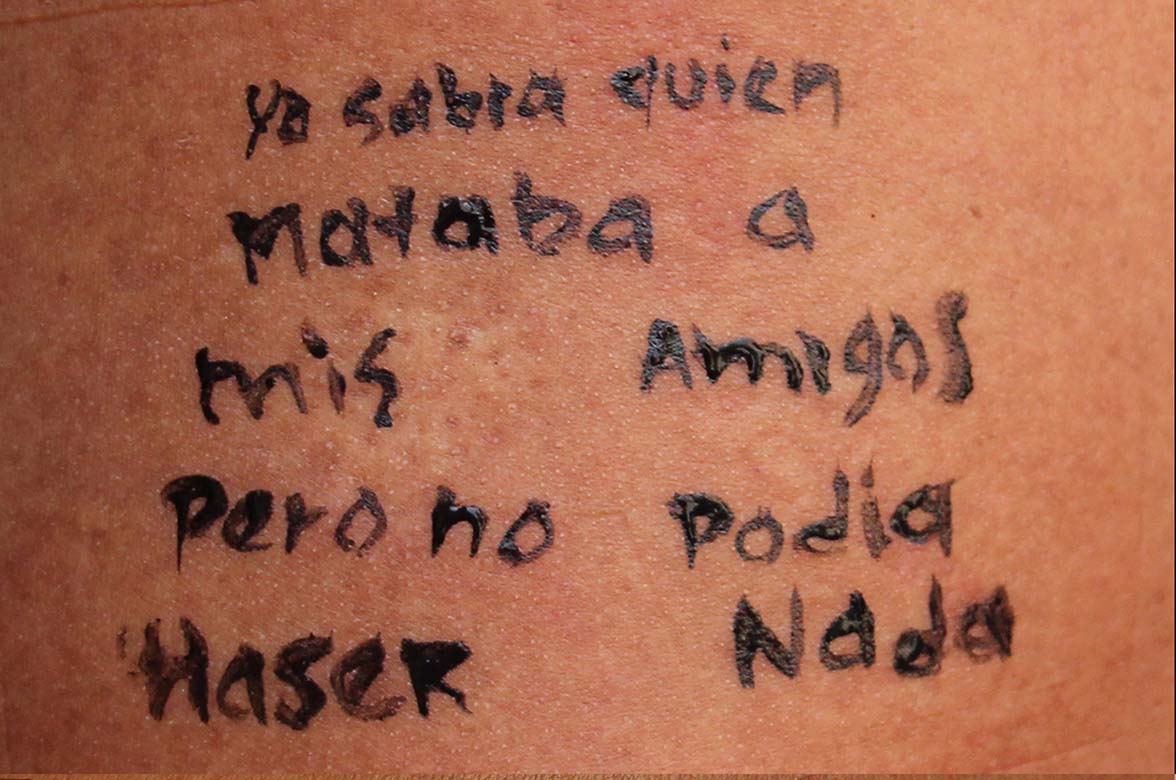 yo sabia quien
mataba a
mis Amigos
Pero no Podia
Haser Nada